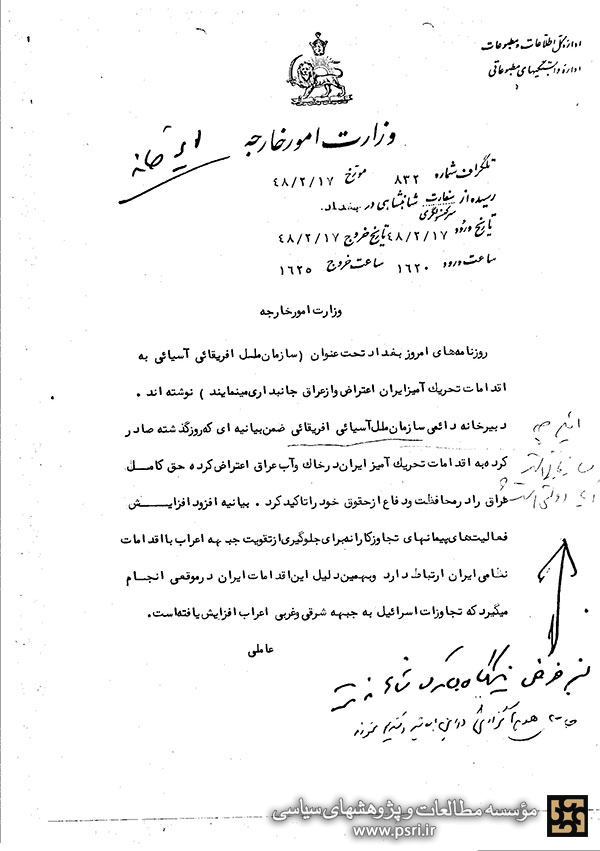 اداره کل اطلاعات و مطبوعات
وزارت امور خارجه
تلگراف شماره ٨٣٢ مورخ ٤٨/٢/١٧
رسیده از سفارت شاهنشاهی در بغداد.
سرکنسولگری
تاریخ ورود ٤٨/٢/١٧ تاریخ خروج ٤٨/٢/١٧
ساعت ورود ١٦٢٠ ساعت خروج ١٦٢٥
وزارت امور خارجه
روزنامه های امروز بغداد تحت عنوان (سازمان ملل افریقائی آسیائی به
اقدامات تحریک آمیز ایران اعتراض و از عراق جانبداری مینمایند) نوشته اند.
دبیرخانه دائمی سازمان ملل آسیائی افریقائی ضمن بیانیه ای که روز گذشته صادر
کرده به اقدامات تحریک آمیز ایران در خاک و آب عراق اعتراض کرده حق کامل
عراق را در محافظت و دفاع از حقوق خود را تاکید کرد. بیانیه افزود افزایش
فعالیت های پیمانهای تجاوزکارانه برای جلوگیری از تقویت جبهه اعراب با اقدامات
نظامی ایران ارتباط دارد و بهمین دلیل این اقدامات ایران در موقعی انجام
میگیرد که تجاوزات اسرائیل به جبهه شرقی و غربی اعراب افزایش یافته است.
عاملی
مؤسسه مطالعات و پژوهشهای سیاسی
www.psri.ir